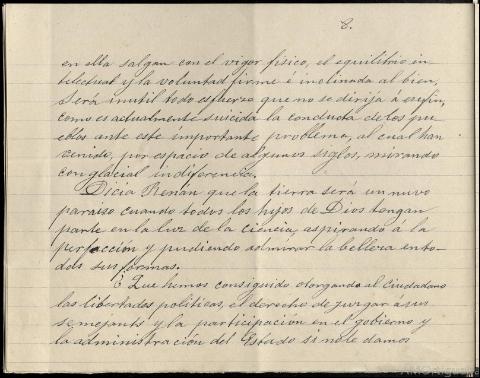 8.
en ella salgan con el vigor fisico, el equilibrio in-
telectual y la voluntad firme é inclinada al bien,
Será inutil todo esfuerzo que no se dirija á ese fin,
como es actualmente suicida la conducta de los pue-
blos ante este importante problema, al cual han
venido, por espacio de algunos siglos, mirando
con glacial indiferencia.
Dicia Renán que la tierra será un nuvo
paraiso cuando todos los hijos de Dios tengan
parte en la luz de la ciencia, aspirando á la
perfección y pudiendo admirar la belleza en to-
das sus formas.
¿ Que hemos consiguido otorgando al ciudadano
las libertades politicas, el derecho de juzgar á sus
semejants y la participación en el gobierno y
la administración del Estado si no le damos